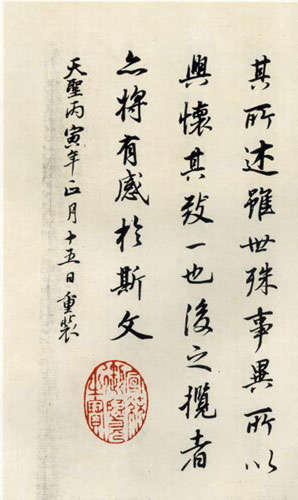 其所述雖世殊事異所以
興懷其致一也後之攬者
亦將有感於斯文
天聖丙寅年正月十五日重裝